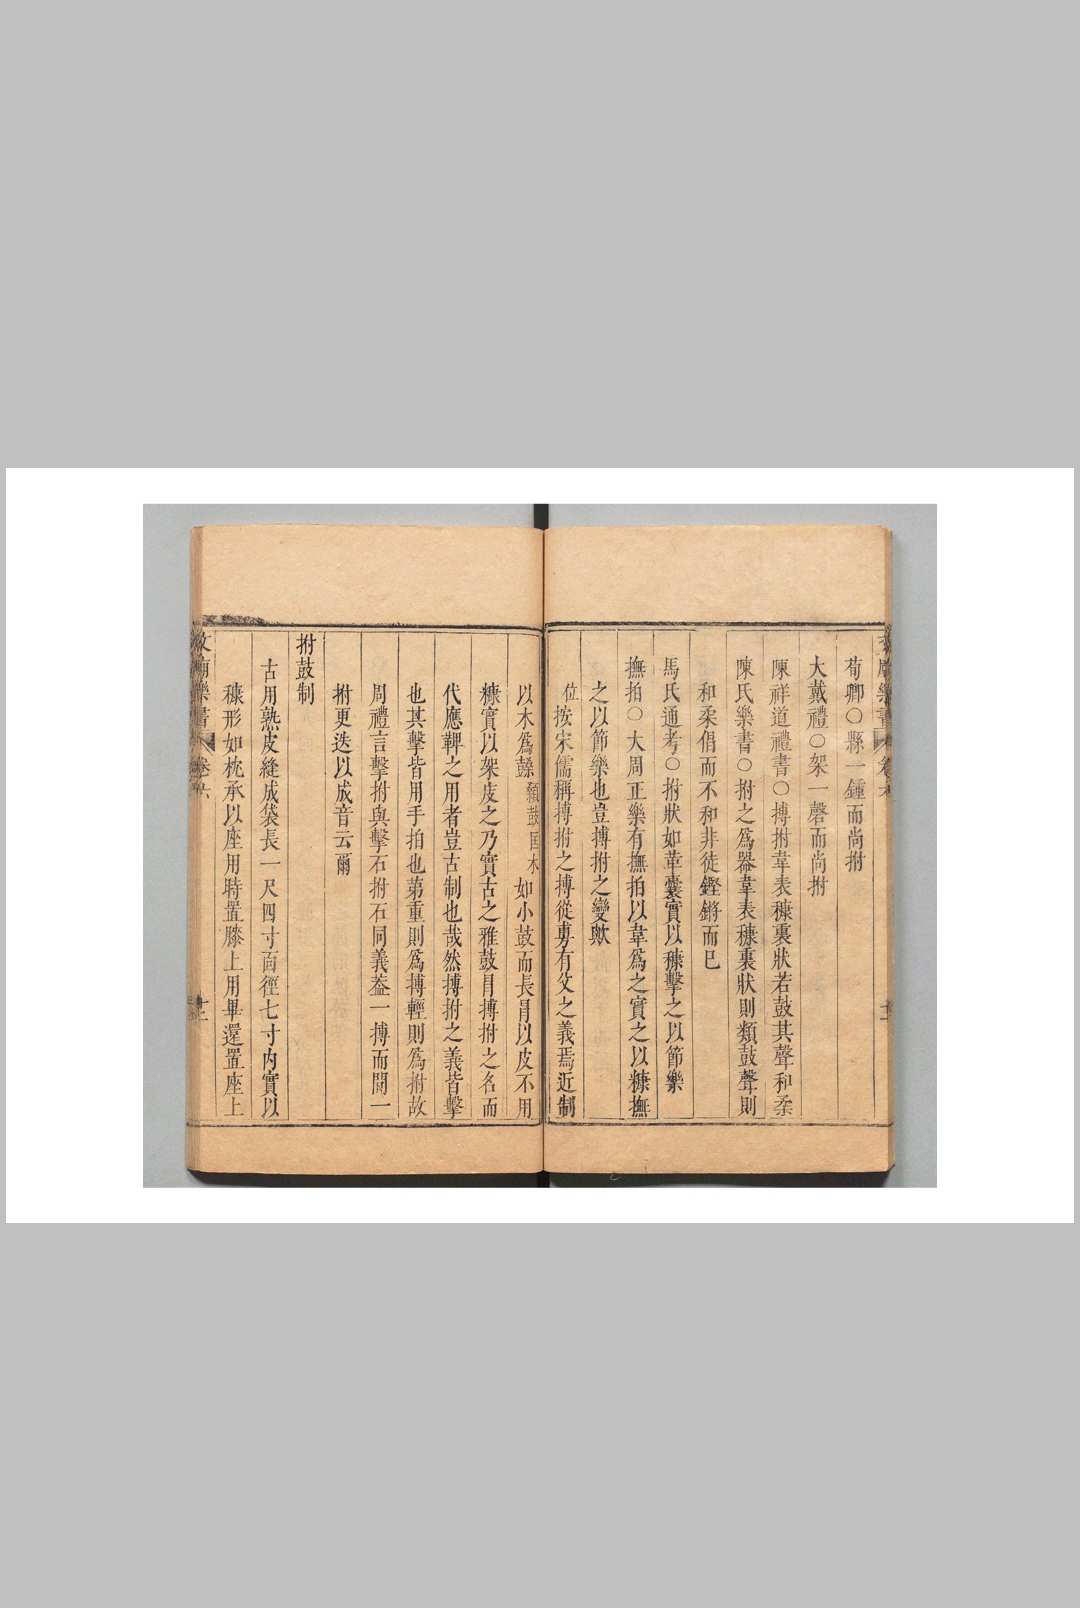 荀卿○縣一鍾而尚拊
大戴禮○架一磬而尚拊
陳祥道禮書○搏拊韋表穅裏狀若鼓其聲和柔
陳氏樂書○拊之爲器韋表穅裏狀則類鼓聲則
和柔倡而不和非徒鏗鏘而已
馬氏通考○拊狀如革囊實以穅擊之以節樂
撫拍○大周正樂有撫拍以韋爲之實之以糠撫
之以節樂也豈搏拊之變歟
位按宋儒稱搏拊之搏從尃有父之義焉近制
以木爲𪔛顙鼓匡木如小鼓而長冐以皮不用
糠實以架庋之乃實古之雅鼓冐搏拊之名而
代應鞞之用者豈古制也哉然搏拊之義皆擊
也其擊皆用手拍也第重則爲搏輕則爲拊故
周禮言擊拊與擊石拊石同義葢一搏而閒一
拊更迭以成音云爾
拊鼓制
古用熟皮縫成袋長一尺四寸面徑七寸內實以
穅形如枕承以座用時置膝上用畢還置座上
文廟樂書 卷六 十二